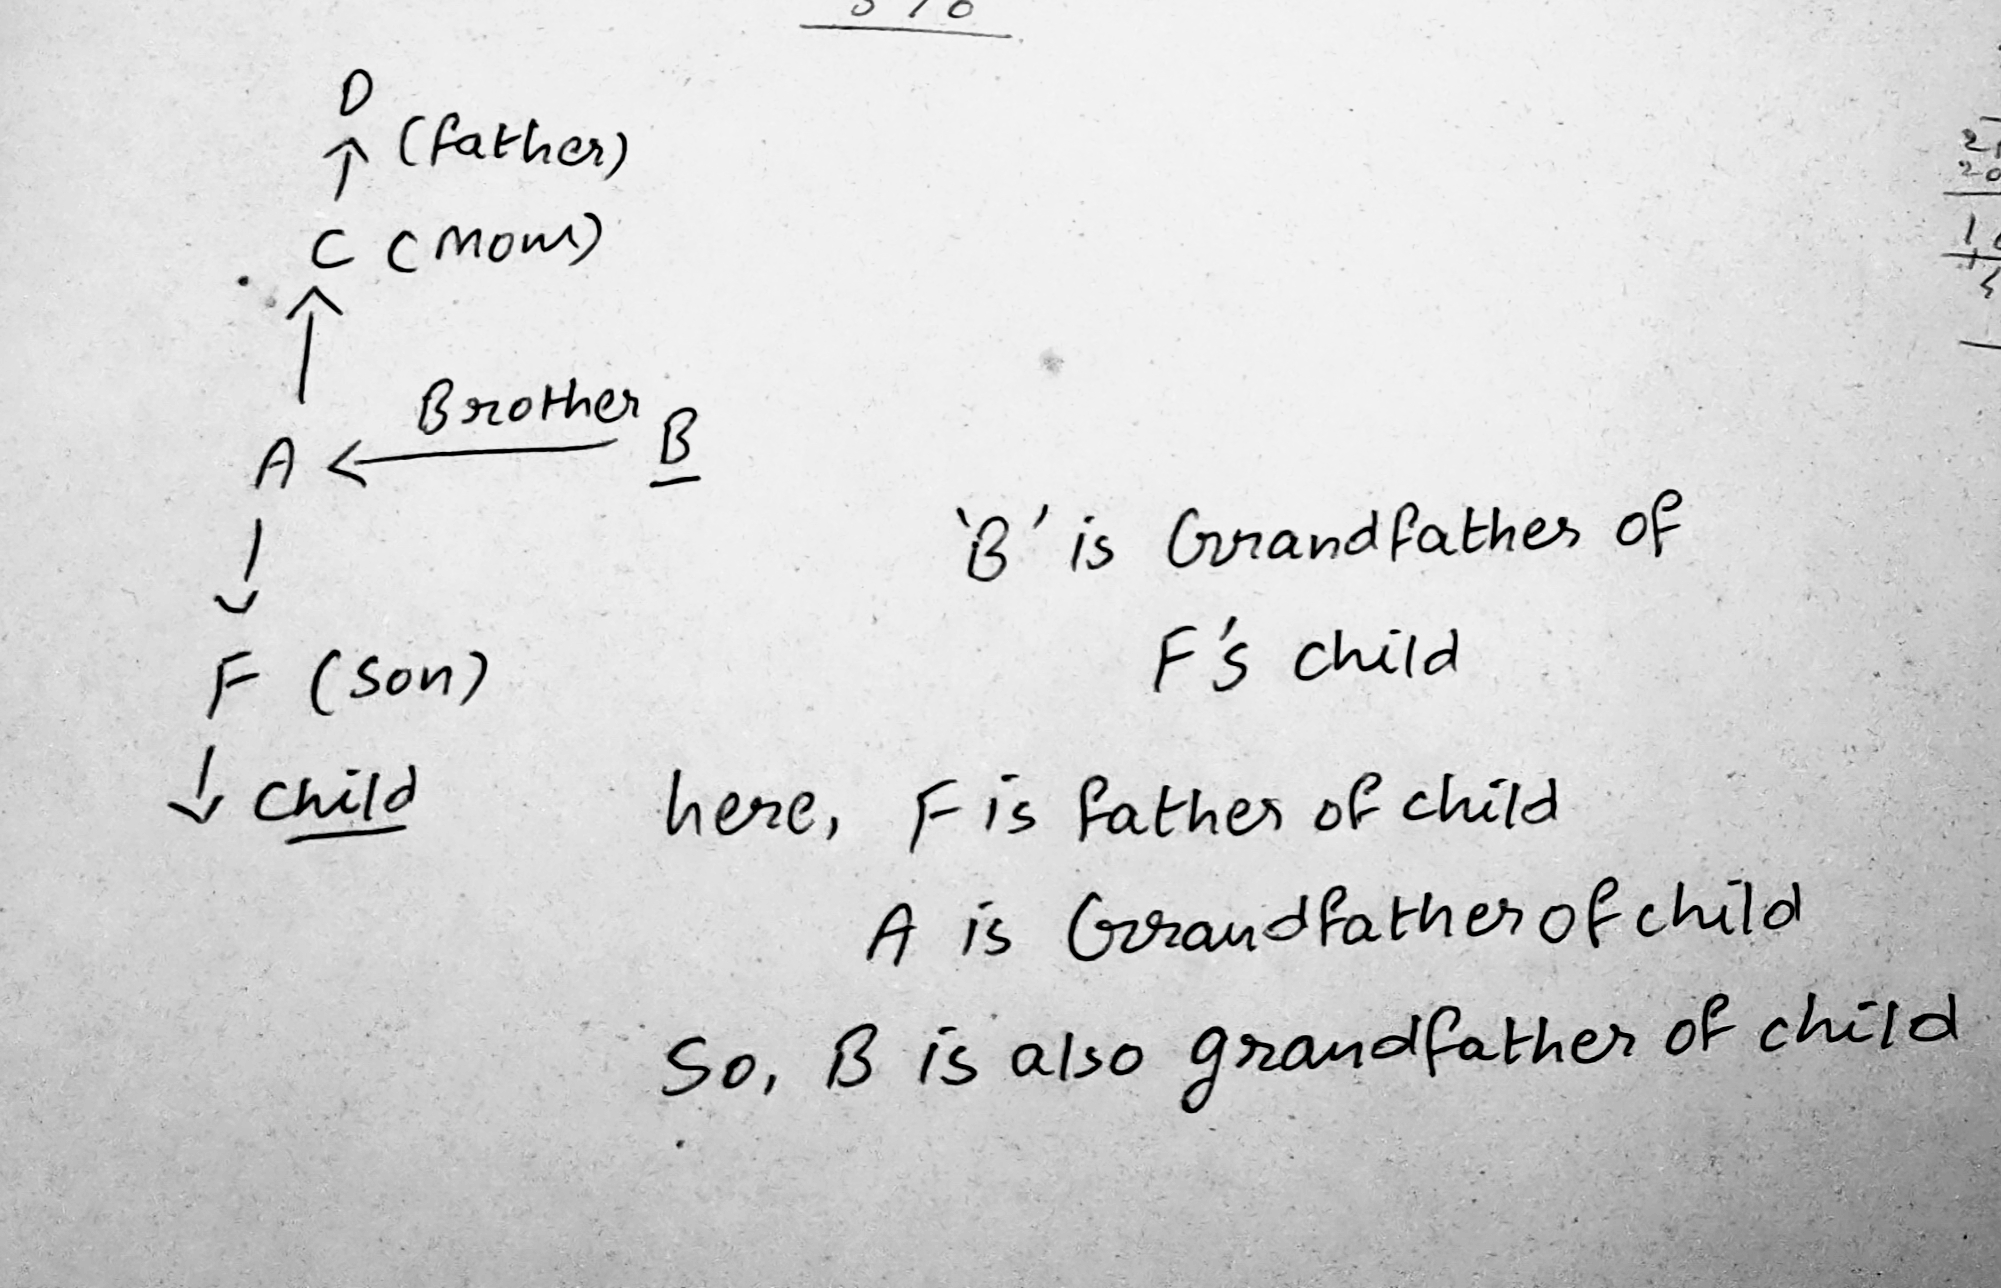 D
↑ (father)
C (Mom)
↑
Brother
A ← B
↓
F (son)
↓ child
'B' is Grandfather of
F's child
here, F is father of child
A is Grandfather of child
So, B is also grandfather of child